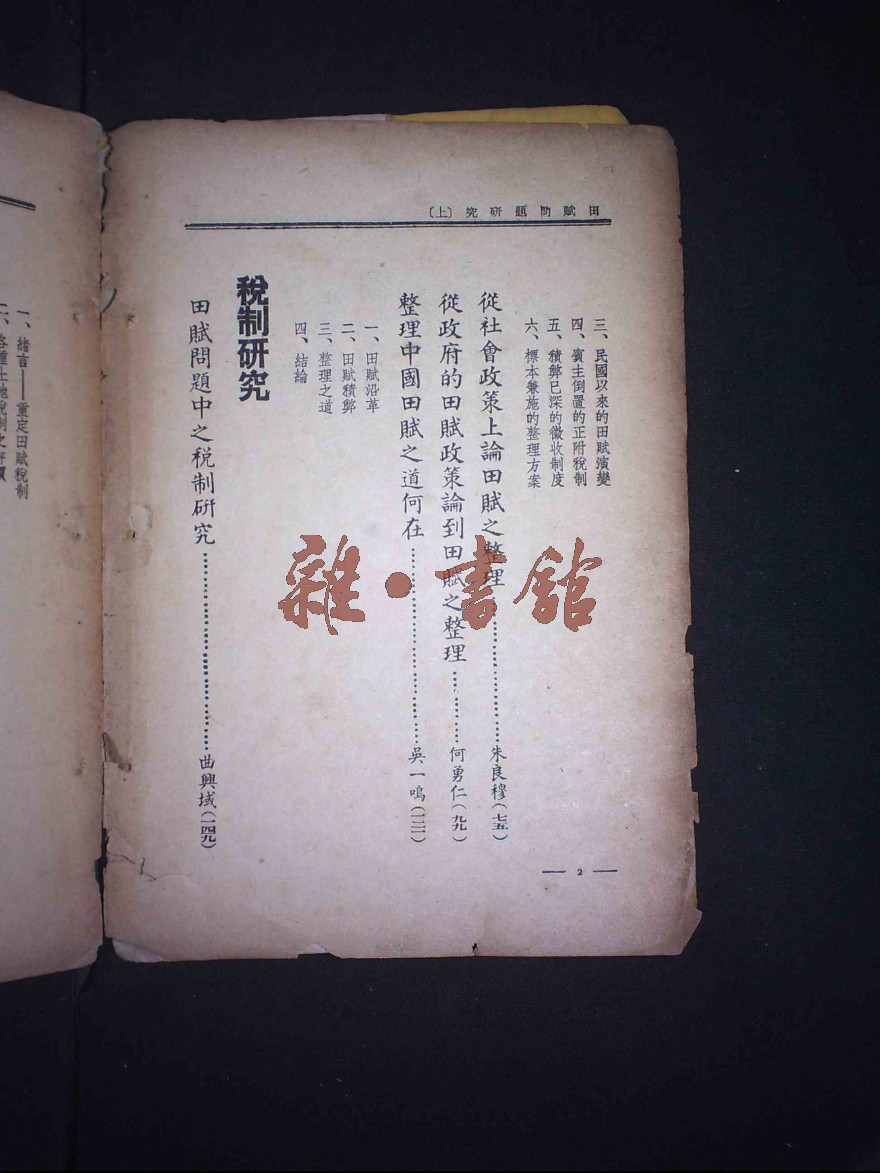 田賦問題研究〔上〕
三、民國以來的田賦演變
四、賓主倒置的正附稅制
五、積弊已深的徵收制度
六、標本兼施的整理方案
從社會政策上論田賦之整理……………………朱良穆(七五)
從政府的田賦政策論到田賦之整理…………何勇仁(九九)
整理中國田賦之道何在……………………………吳一鳴(一二一)
一、田賦沿革
二、田賦積弊
三、整理之道
四、結論
稅制研究
田賦問題中之稅制研究……………………………曲興域(一四九)
2
一、緒言——重定田賦稅制
二、各種土地稅制之評價
雜·書館